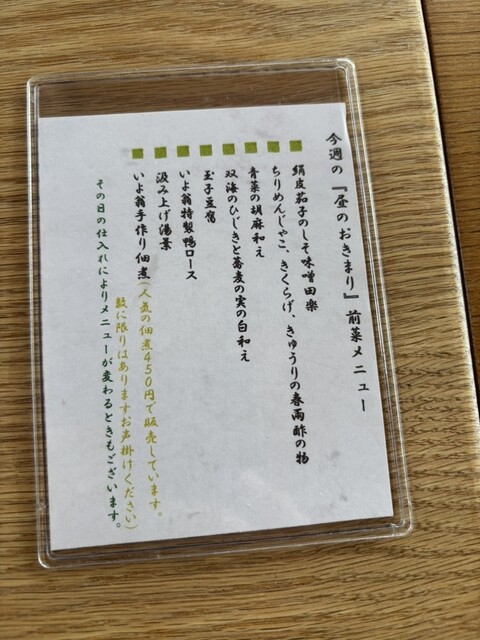 今週の『昼のおきまり』前菜メニュー
■ 絹皮茄子のしそ味噌田楽
■ ちりめんじゃこ、きくらげ、きゅうりの春雨酢の物
■ 青菜の胡麻和え
■ 双海のひじきと蕎麦の実の白和え
■ 玉子豆腐
■ いよ翁特製鴨ロース
■ 汲み上げ湯葉
■ いよ翁手作り佃煮(人気の佃煮450円で販売しています。
数に限りはありますお声掛けください)
その日の仕入れによりメニューが変わるときもございます。